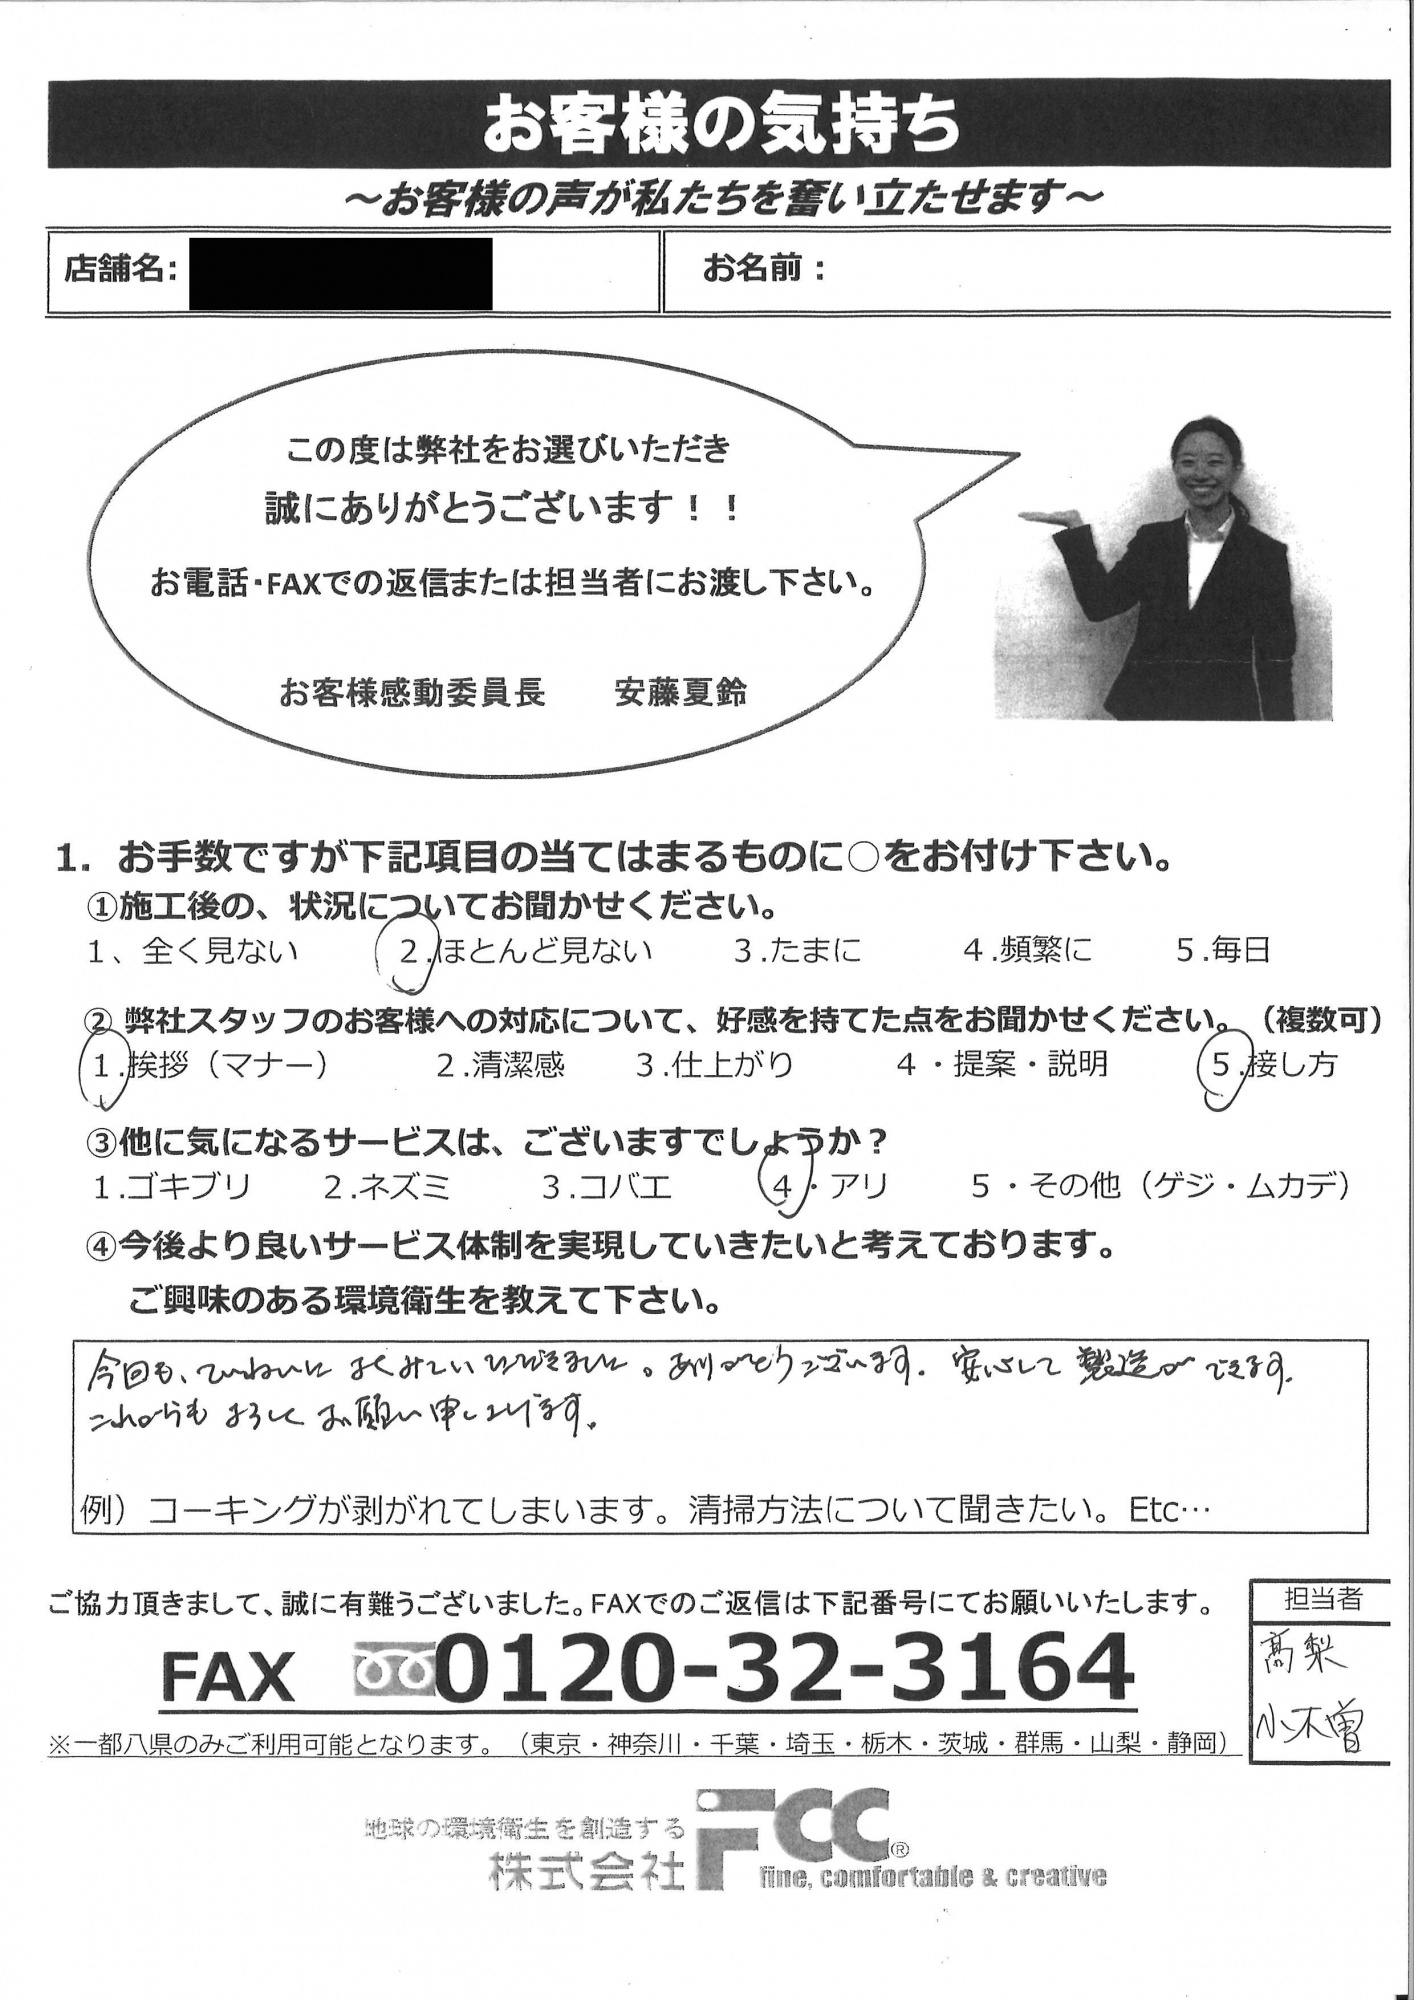 お客様の気持ち
～お客様の声が私たちを奮い立たせます～
店舗名:
お名前：
この度は弊社をお選びいただき
誠にありがとうございます！！
お電話・FAXでの返信または担当者にお渡し下さい。
お客様感動委員長　　安藤夏鈴
1．お手数ですが下記項目の当てはまるものに○をお付け下さい。
①施工後の、状況についてお聞かせください。
1、全く見ない　2.ほとんど見ない　3.たまに　4.頻繁に　5.毎日
② 弊社スタッフのお客様への対応について、好感を持てた点をお聞かせください。（複数可）
1.挨拶（マナー）　2.清潔感　3.仕上がり　4・提案・説明　5.接し方
③他に気になるサービスは、ございますでしょうか？
1.ゴキブリ　2.ネズミ　3.コバエ　4・アリ　5・その他（ゲジ・ムカデ）
④今後より良いサービス体制を実現していきたいと考えております。
ご興味のある環境衛生を教えて下さい。
今回も、ていねいに よくみていただきました。ありがとうございます。安心して 製造ができます。
これからも よろしく お願い申し上げます。
例）コーキングが剥がれてしまいます。清掃方法について聞きたい。Etc…
ご協力頂きまして、誠に有難うございました。FAXでのご返信は下記番号にてお願いいたします。
担当者
高梨
小木曽
FAX 0120-32-3164
※一都八県のみご利用可能となります。（東京・神奈川・千葉・埼玉・栃木・茨城・群馬・山梨・静岡）
地球の環境衛生を創造する
株式会社 FCC®
fine, comfortable & creative